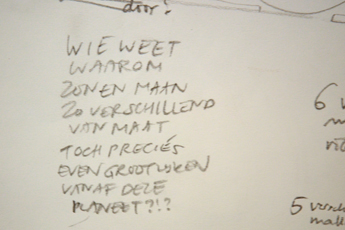 door?
WIE WEET
WAAROM
ZON EN MAAN
ZO VERSCHILLEND
VAN MAAT
TOCH PRECIÉS
EVEN GROOT LIJKEN
VANAF DEZE
PLANEET?!?
6 v
5 versch